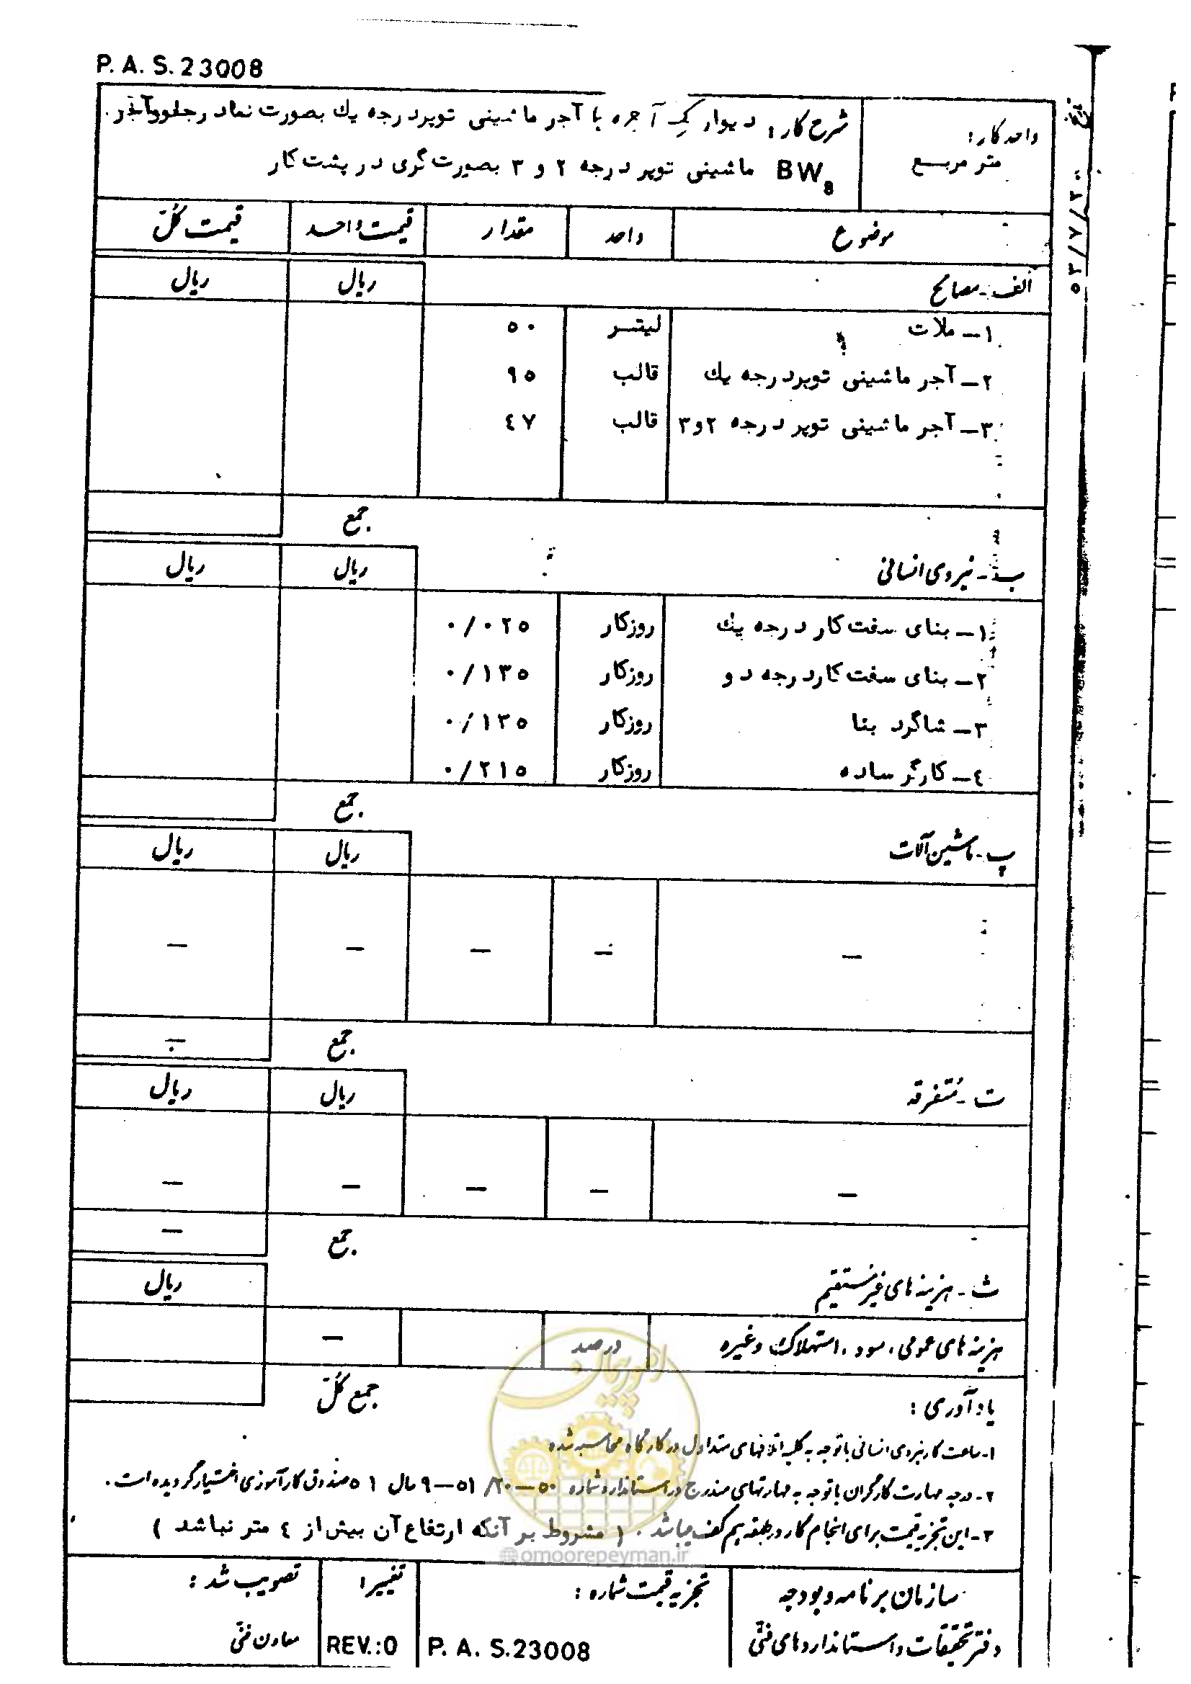 P. A. S. 23008
واحد کار:
متر مربع
شرح کار: دیوار یک آجره با آجر ماشینی توپر درجه یک بصورت نما در جلو و آجر
ماشینی توپر درجه ۲ و ۳ بصورت گری در پشت کار BW8
۵۳/۷/۳۰
موضوع واحد مقدار قیمت واحد قیمت کُلّ
الف - مصالح ریال ریال
۱- ملات لیتر ۵۰
۲- آجر ماشینی توپر درجه یک قالب ۹۵
۳- آجر ماشینی توپر درجه ۲ و ۳ قالب ٤۷
جمع
ب - نیروی انسانی ریال ریال
۱- بنای سفت کار درجه یک روزکار ۰/۰۲۵
۲- بنای سفت کار درجه دو روزکار ۰/۱۳۵
۳- شاگرد بنا روزکار ۰/۱۳۵
٤- کارگر ساده روزکار ۰/۲۱۵
جمع
پ - ماشین آلات ریال ریال
— — — — —
جمع —
ت - مُتفرقه ریال ریال
— — — — —
جمع —
ث - هزینه های غیرمستقیم ریال
هزینه های عمومی، سود، استهلاک وغیره درصد —
جمع کُلّ
یادآوری:
۱- ساعت کار نیروی انسانی با توجه به کلیه اتلافهای متداول در کارگاه محاسبه شده
۲- درجه مهارت کارگران با توجه به مهارتهای مندرج در استاندارد شماره ۵۰-۲۰/ ۵۱-۹ سال ۵۱ صندوق کارآموزی اختیار گردیده است.
۳- این تجزیه قیمت برای انجام کار در طبقه هم کف میباشد. ( مشروط بر آنکه ارتفاع آن بیش از ٤ متر نباشد )
امور پیمان
@omoorepeyman.ir
سازمان برنامه و بودجه
دفتر تحقیقات و استانداردهای فنّی
تجزیه قیمت شماره:
P. A. S.23008
تغییر:
REV.:0
تصویب شد:
معاون فنّی